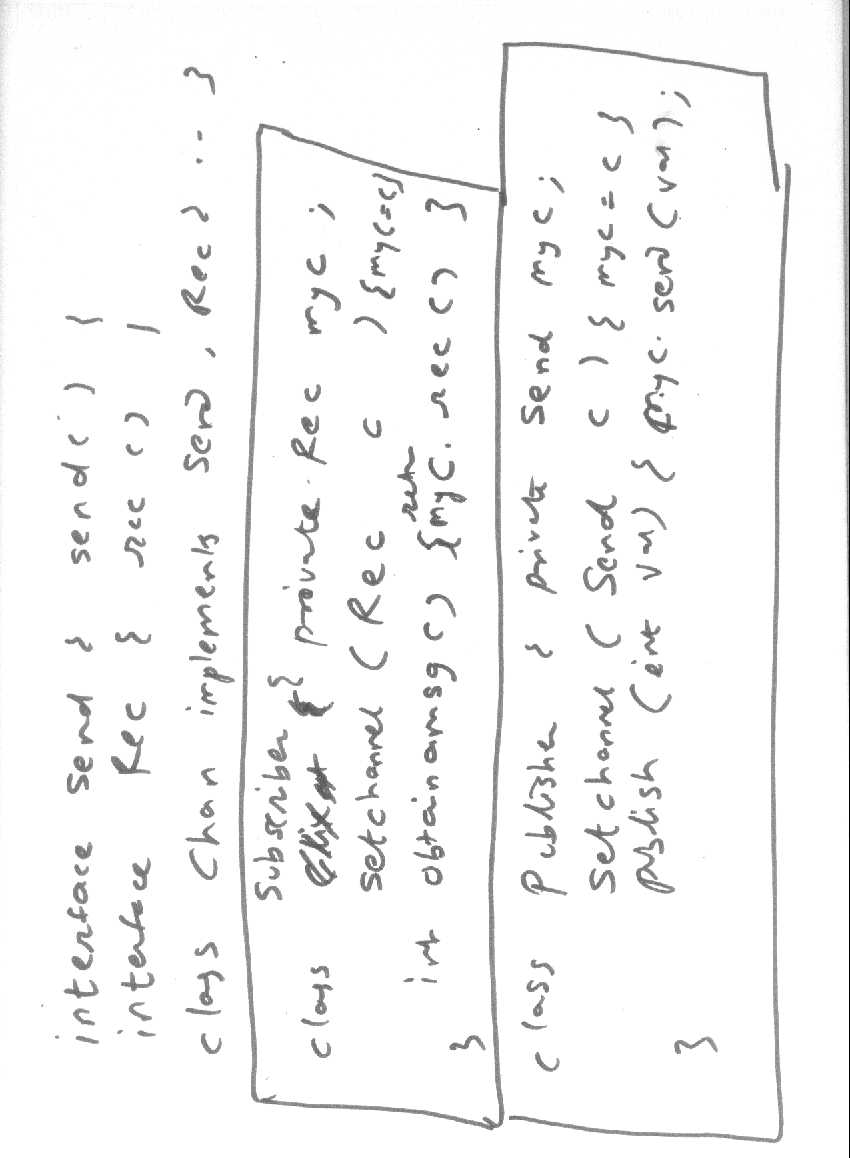 interface Send { send() }
interface Rec { rec() }
class Chan implements Send, Rec { .. }
Subscriber
class { private Rec myc ;
setchannel (Rec c ) {myc=c}
retn
int obtainamsg() {myC. rec () }
}
class Publisher { private Send myc ;
Setchannel ( Send c ) { myc = c }
publish (int val) { myc. send (val) ;
}